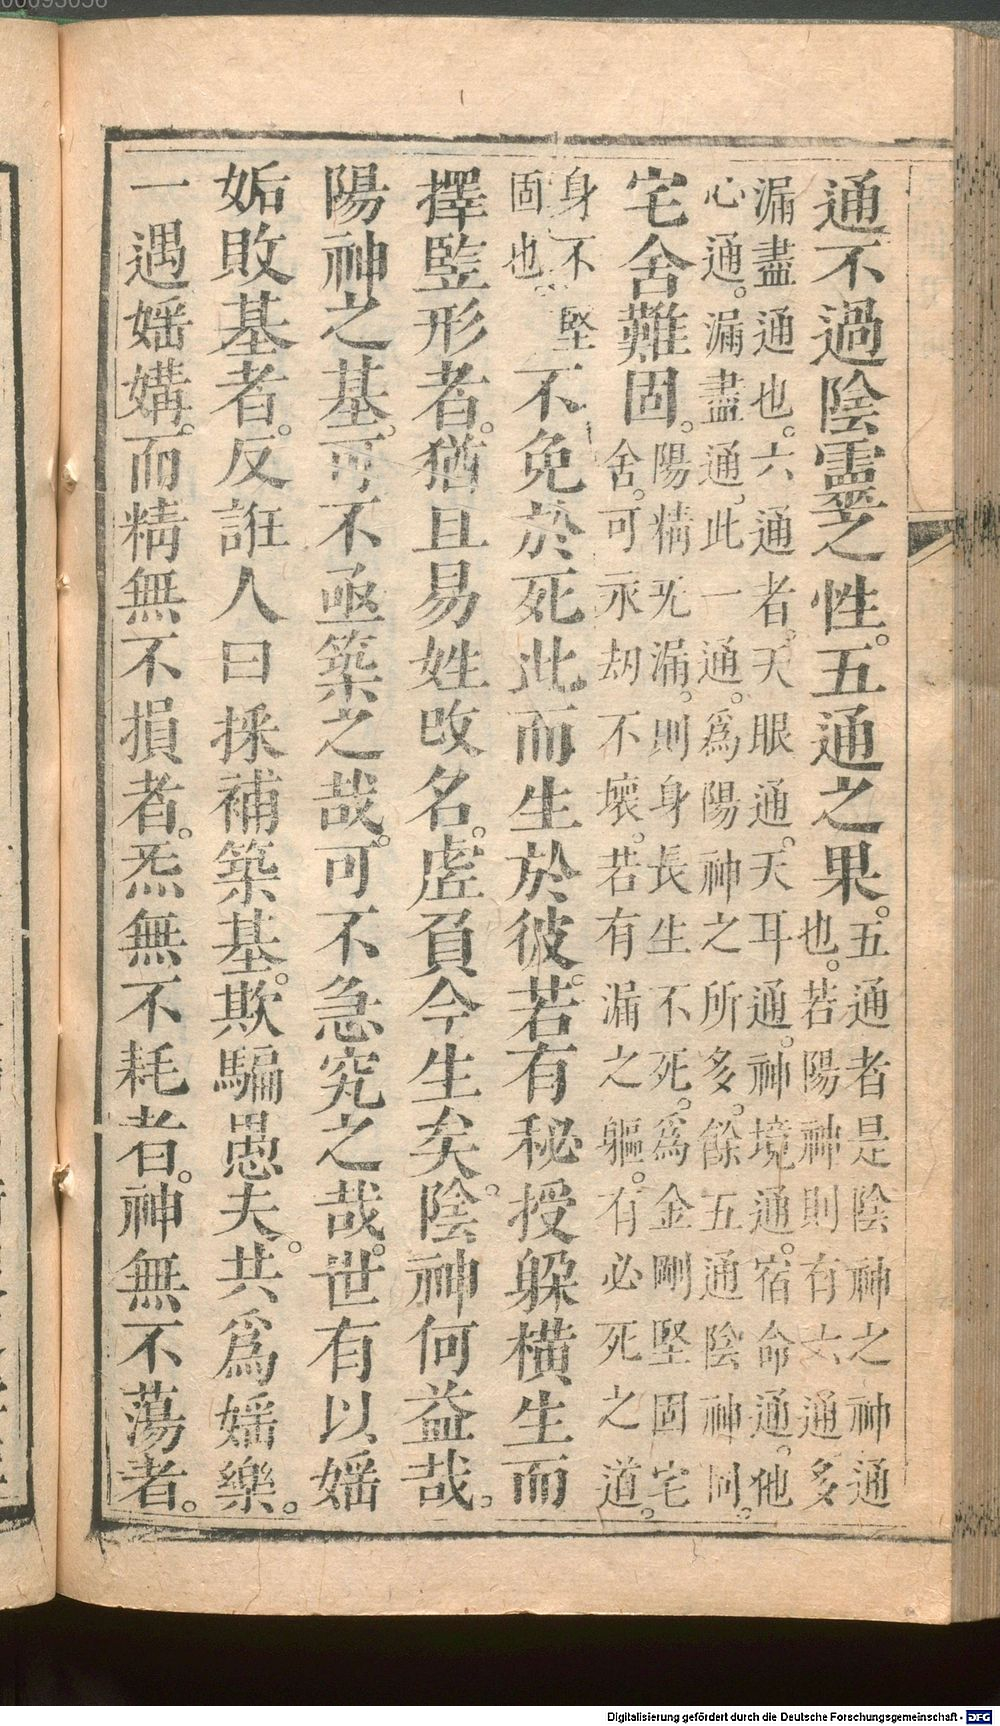 00093056
通不過陰靈之性。五通之果。五通者是陰神之神通
也。若陽神則有六通多
漏盡通也。六通者。天眼通。天耳通。神境通。宿命通。他
心通。漏盡通。此一通。爲陽神之所多。餘五通陰神同。
宅舍難固。陽精旡漏。則身長生不死。爲金剛堅固宅
舍。可永劫不壞。若有漏之軀。有必死之道。
身不堅
固也。不免於死此而生於彼。若有秘授躲橫生而
擇豎形者。猶且易姓改名。虛負今生矣。陰神何益哉。
陽神之基。可不亟築之哉。可不急究之哉。世有以婬
姤敗基者。反誑人曰採補築基。欺騙愚夫。共爲婬樂。
一遇婬媾。而精無不損者。炁無不耗者。神無不蕩者。
Digitalisierung gefördert durch die Deutsche Forschungsgemeinschaft - DFG